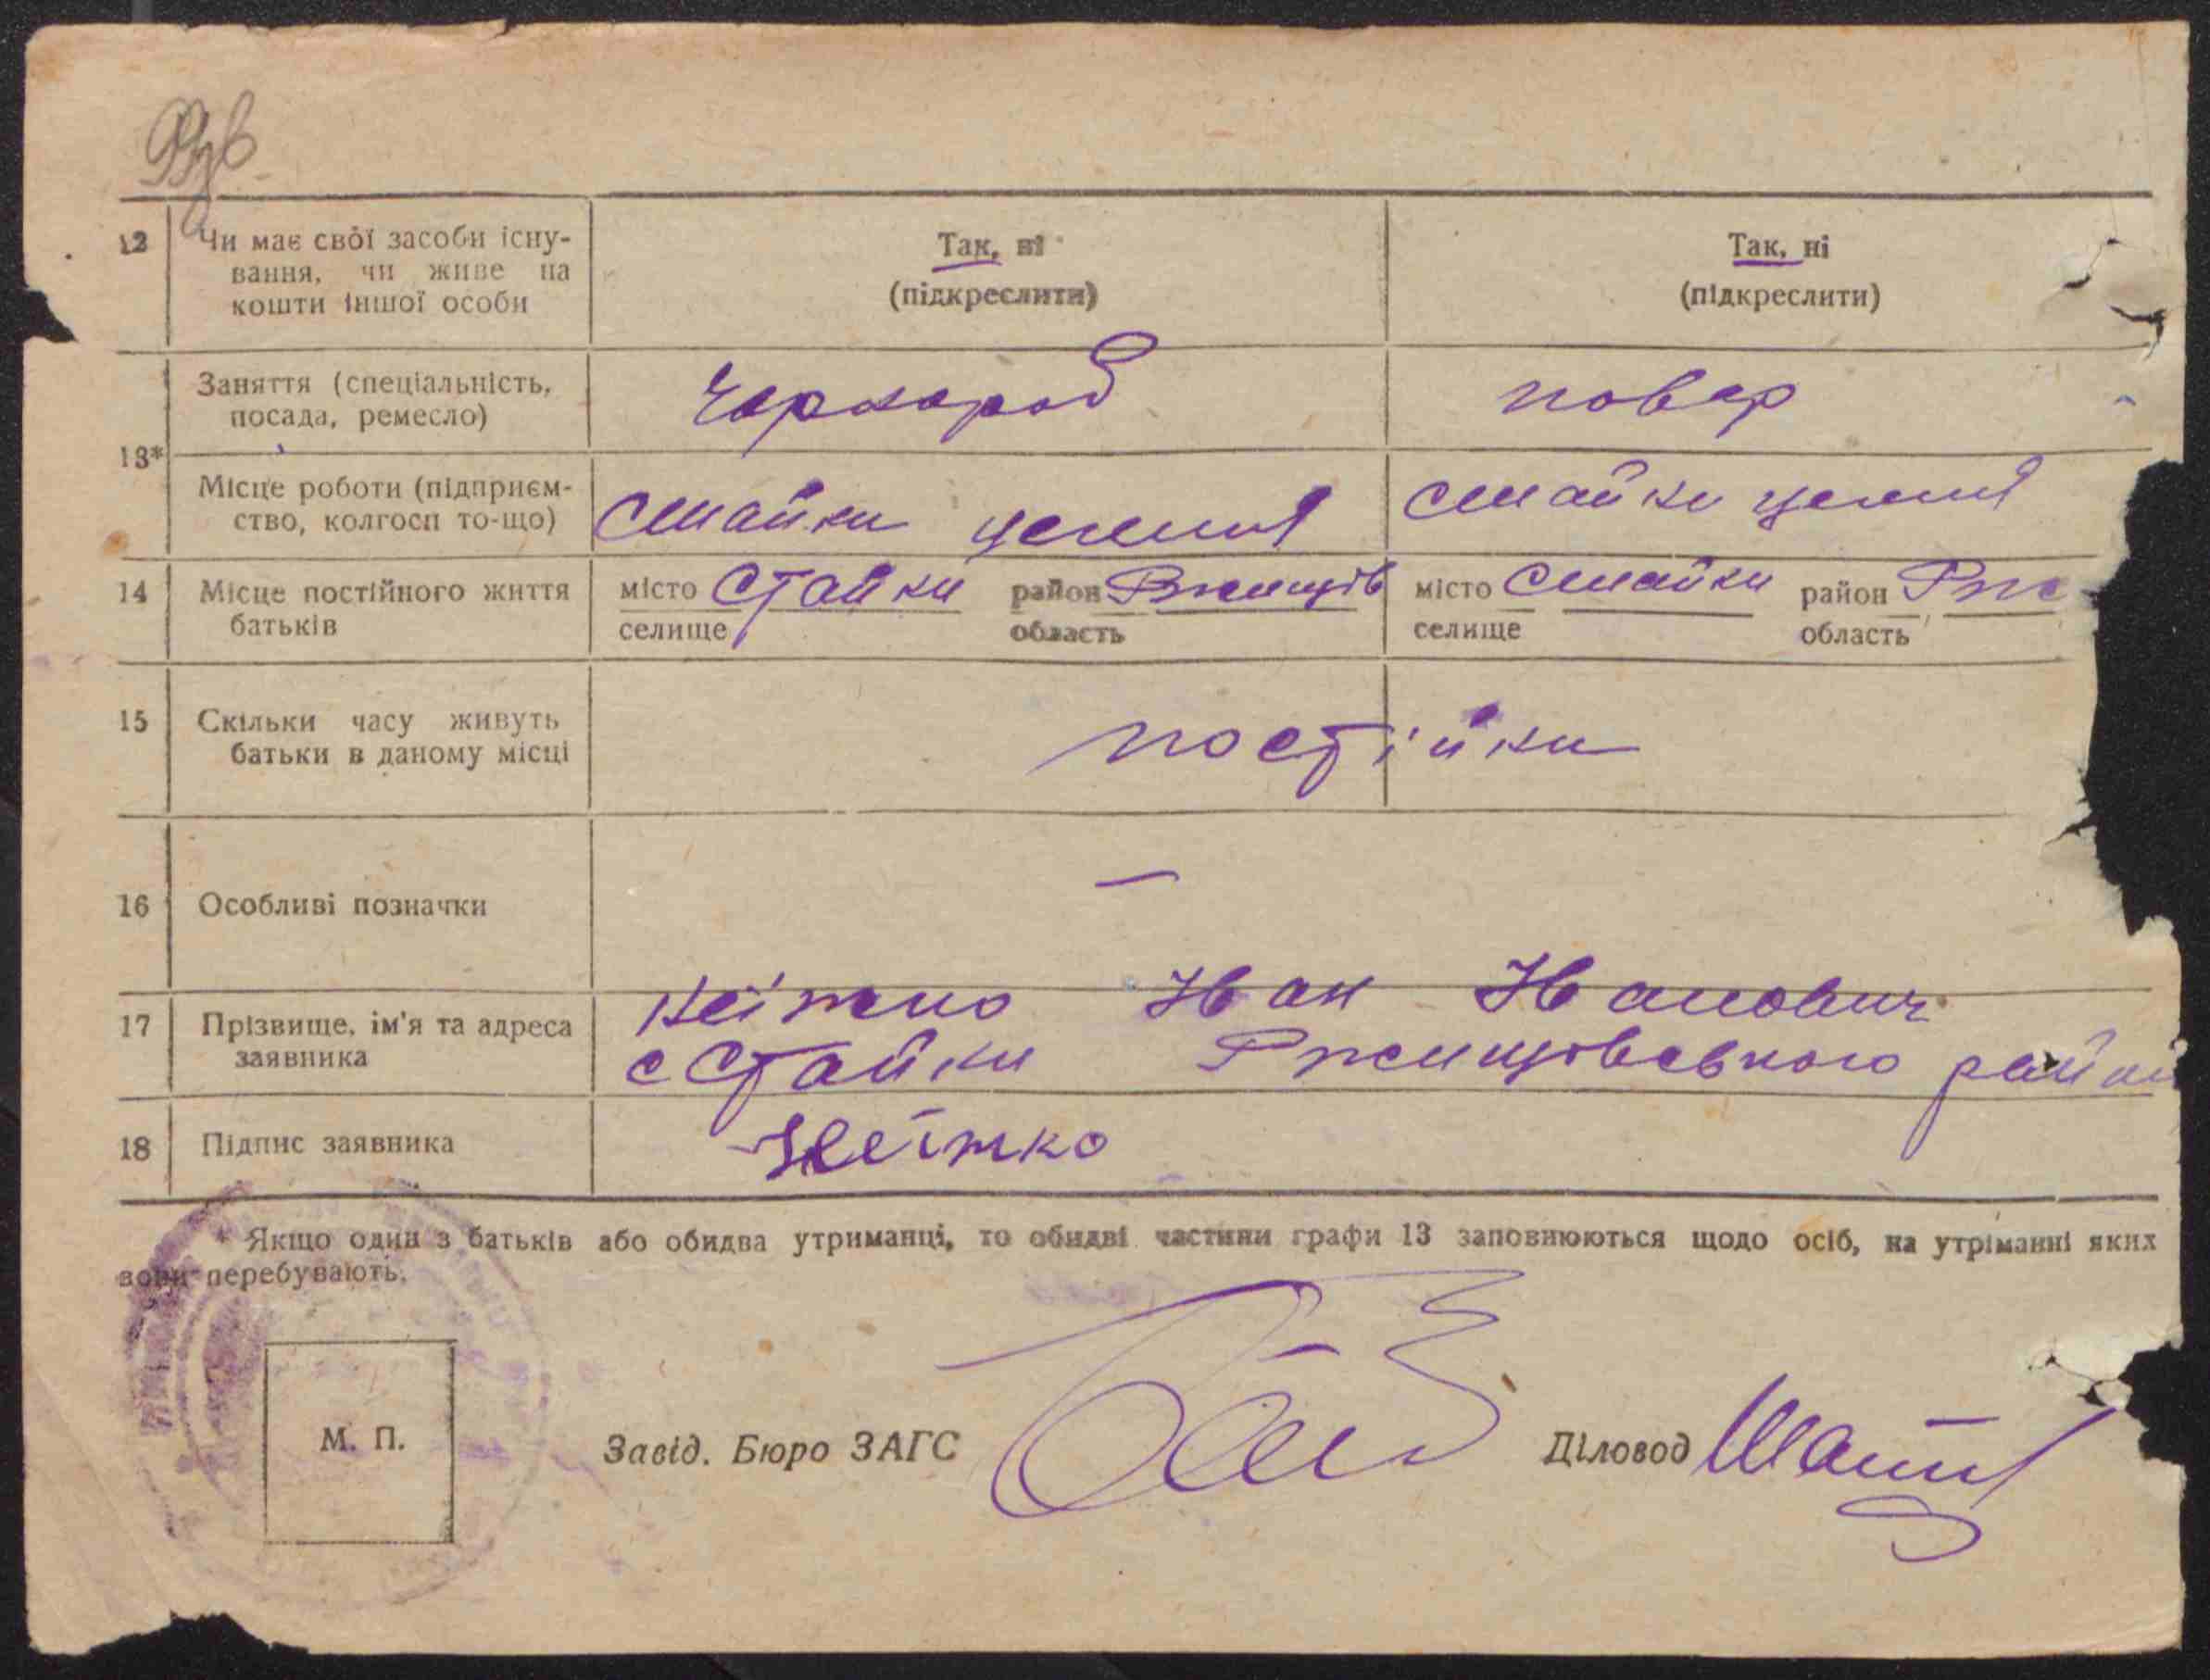 12 Чи має свої засоби існу-
вання, чи живе на
кошти іншої особи
Так, ні
(підкреслити)
Так, ні
(підкреслити)
13*
Заняття (спеціальність,
посада, ремесло)
Чорнороб
повар
Місце роботи (підприєм-
ство, колгосп то-що)
Стайки
Стайки
14 Місце постійного життя
батьків
місто Стайки район Ржищів
селище область
місто Стайки район Рж
селище область
15 Скільки часу живуть
батьки в даному місці
постійни
16 Особливі позначки
—
17 Прізвище, ім'я та адреса
заявника
Іван Іванович
с Стайки Ржищівського
18 Підпис заявника
* Якщо один з батьків або обидва утриманці, то обидві частини графи 13 заповнюються щодо осіб, на утріманні яких
вони перебувають.
М. П.
Завід. Бюро ЗАГС
Діловод